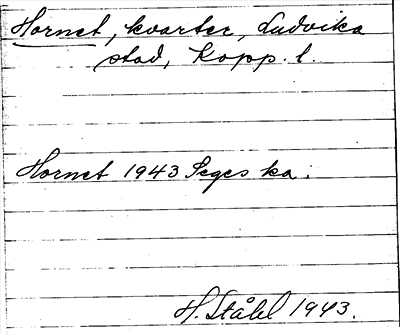 Hornet, kvarter, Ludvika
stad, Kopp. l.
Hornet 1943 Seges ka.
H. Ståhl 1943.